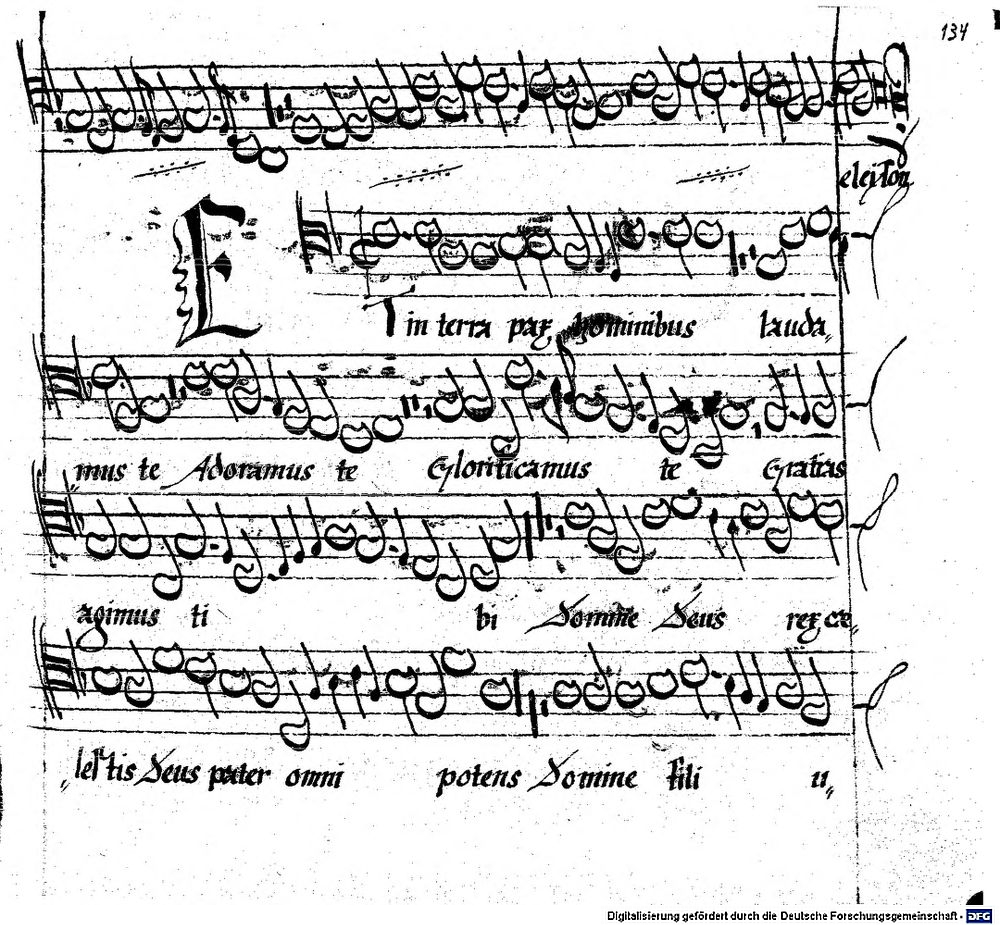 134
eleison
Et in terra pax hominibus lauda„
„mus te Adoramus te Glorificamus te Gratias
agimus ti bi Domine Deus rex cæ„
„lestis Deus pater omni potens Domine fili u„
Digitalisierung gefördert durch die Deutsche Forschungsgemeinschaft - DFG